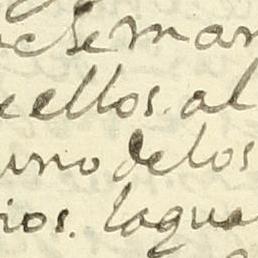 Seman
ellos. al
uno de los
ios. laqua